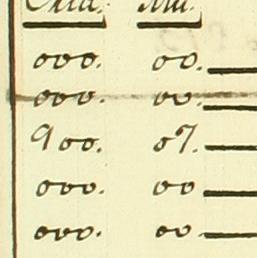 000. 00.
000. 00.
900. 07.
000. 00
000. 00